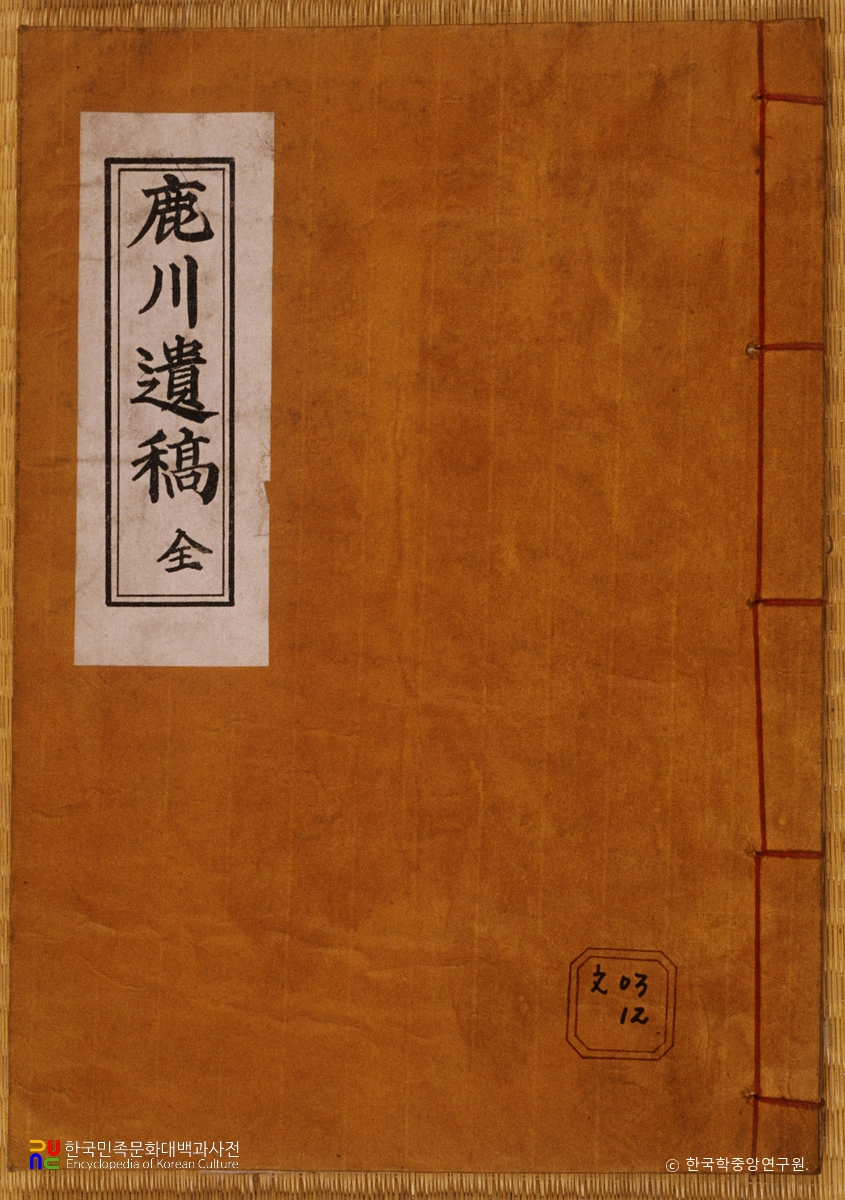 鹿川遺稿 全
文 03
12
한국민족문화대백과사전
Encyclopedia of Korean Culture
© 한국학중앙연구원.